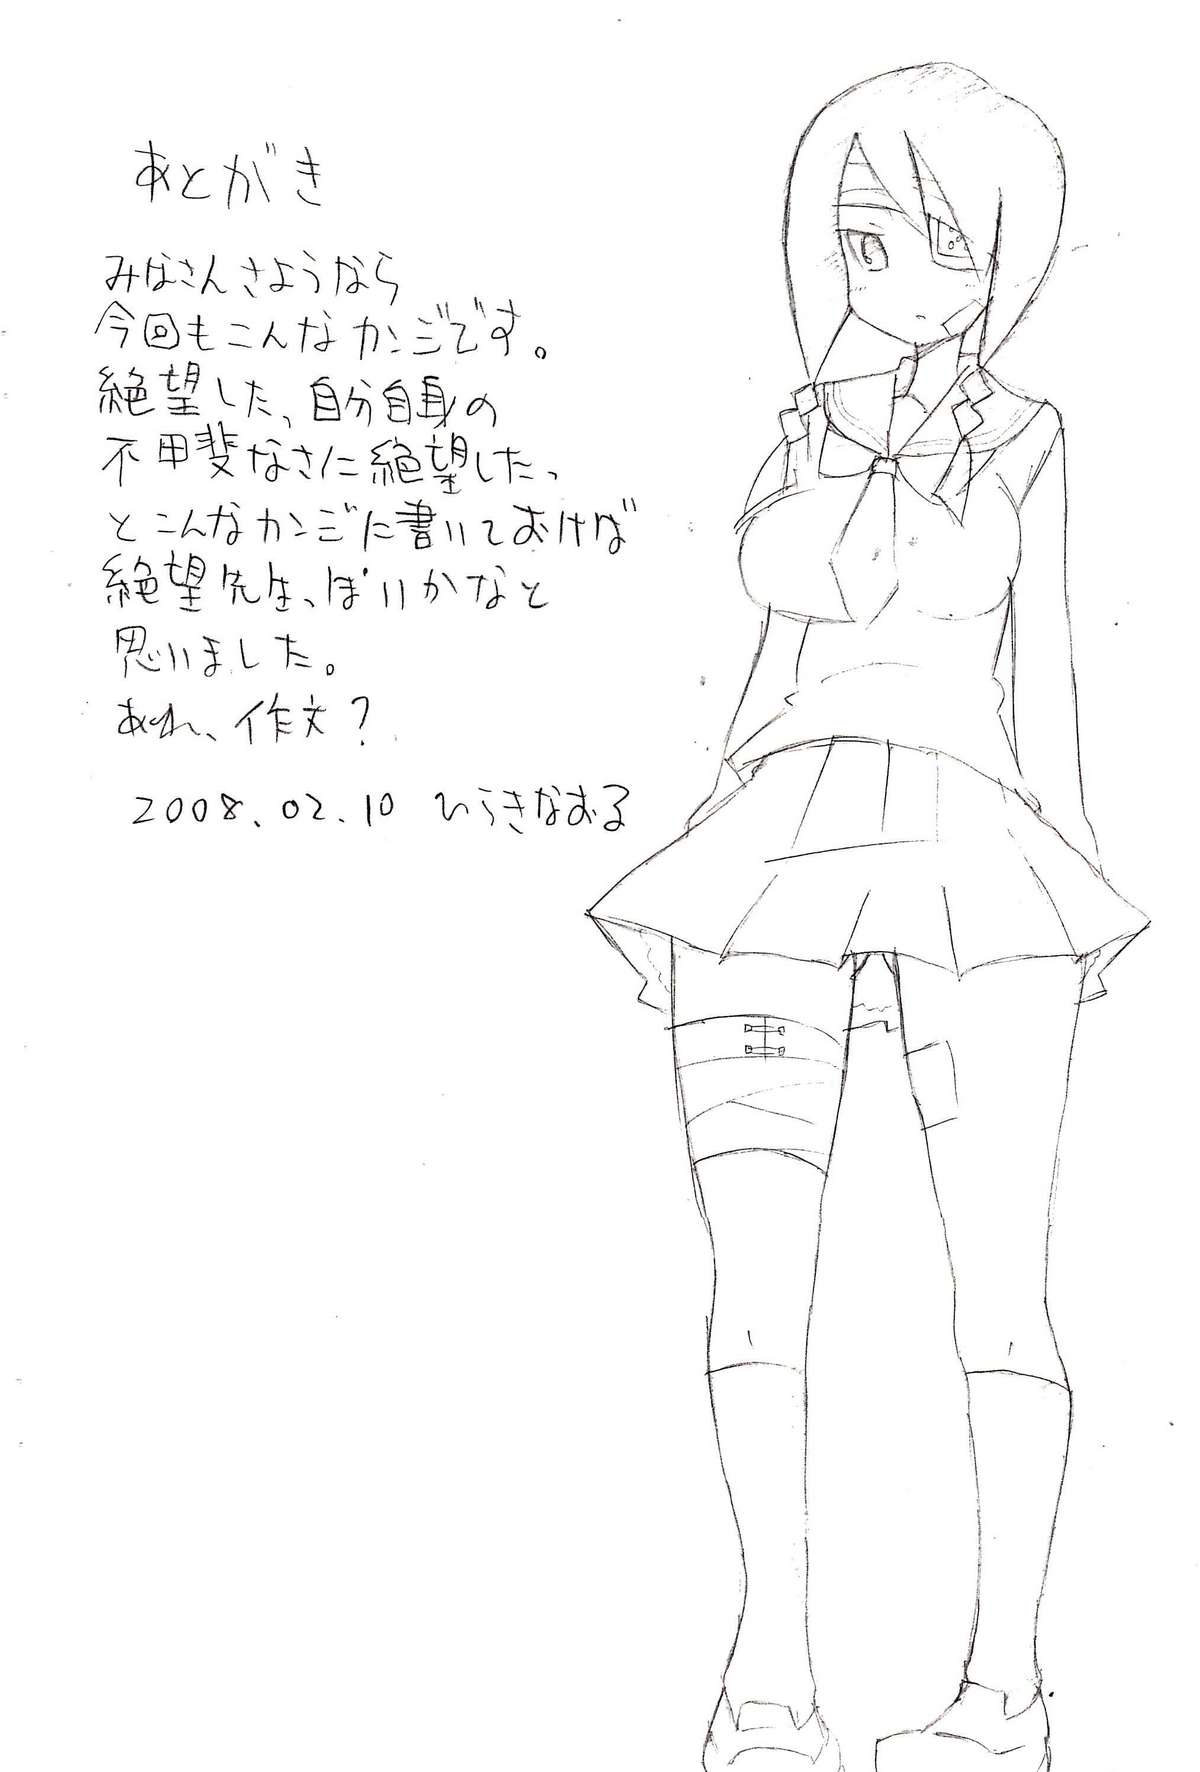 あとがき
みなさんさようなら
今回もこんなカンジです。
絶望した、自分自身の
不甲斐なさに絶望したっ
とこんなカンジに書いておけば
絶望先生、ぽいかなと
思いました。
あれ、作文？
2008.02.10 ひらきなおる